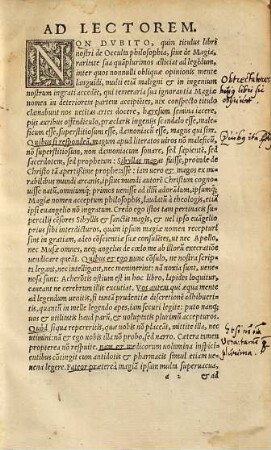 AD LECTOREM.
NON DVBITO, quin titulus libri
nostri de Occulta philosophia, siue de Magia,
raritate sua quamplurimos alliciat ad legēdum,
inter quos nonnulli obliquæ opinionis mente
languidi, multi etiā maligni & in ingenium
nostrum ingrati accedēt, qui temeraria sua ignorantia Magiæ
nomen in deteriorem partem accipiētes, uix conspecto titulo
clamabunt nos uetitas artes docere, hæresum semina iacere,
pias aurihus offendiculo, præclaris ingenijs scandalo, maleficum
esse, superstitiosum esse, dæmoniacū esse, magus qui sim.
Quibus si respondeā, magum apud literatos uiros nō maleficū,
nō superstitiosum, non dæmoniacum sonare, sed sapientē, sed
sacerdotem, sed prophetam: Sibyllas magas fuisse, proinde de
Christo tā apertissime prophetasse. iam uero & magos ex mi=
rabilibus mundi arcanis, ipsius mundi autorē Christū cogno=
uisse natū, omniumq; primos uenisse ad illū adorādum, ipsumq́;
Magiæ nomen acceptum philosophis, laudatū à theologis, etiā
ipsi euangelio nō ingratum. Credo ego istos tam pertinacis su=
percilij censores Sibyllis & sanctis magis, & uel ipso euangelio
prius sibi interdicturos, quàm ipsum magiæ nomen recepturi
sint in gratiam, adeo conscientiæ suæ consulētes, ut nec Apol=
lo, nec Musæ omnes, neq; angelus de cœlo me ab illorū execra=
tione uindicare queāt. Quibus & ego nunc cōsulo, ne nostra scri=
pta legant, nec intelligant, nec meminerint: nā noxia sunt, uene=
nosa sunt: Acherōtis ostium est in hoc libro, lapides loquitur,
caueant ne cerebrum illis excutiat. Vos autem qui æqua men=
te ad legendum uenitis, si tantā prudentiæ discretionē adhibuerit=
tis, quantā in melle legendo apes, iam securi legite: puto nanq;
uos & utilitatis haud parū, & uoluptatis plurimū accepturos.
Quòd siqua repereritis, quæ uobis nō placeāt, mittite illa, nec
utimini: nā & ego uobis illa nō probo, sed narro. Cætera tamen
propterea nō respuite. nam & medicorum uolumina inspicien=
tibus cōtingit cum antidotis & pharmacis simul etiam uene=
na legere. Fateor præterea magiā ipsam multa superuacua,
a 2 & ad